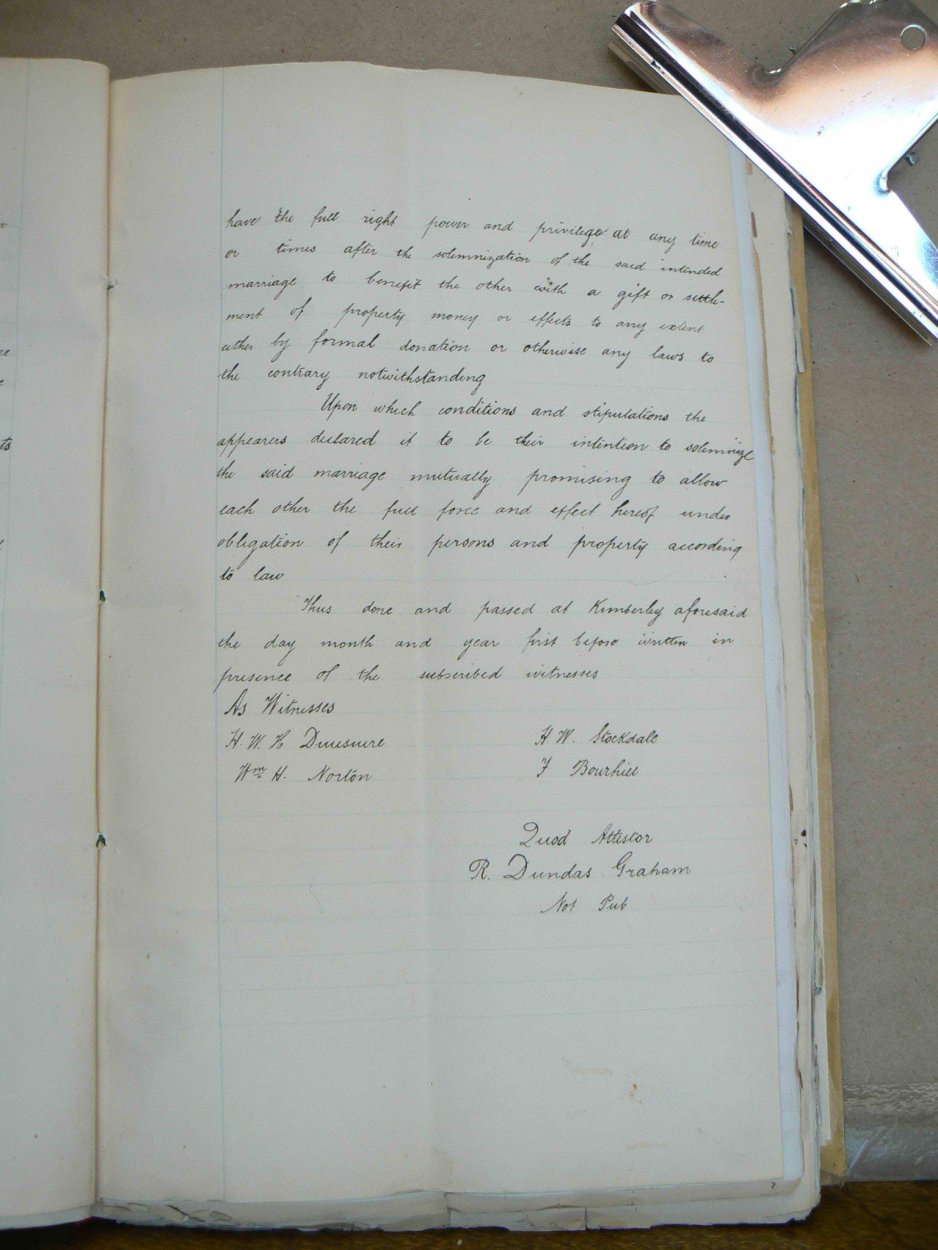 have the full right power and privilege at any time
or times after the solemnization of the said intended
marriage to benefit the other with a gift or settle-
ment of property money or effects to any extent
either by formal donation or otherwise any laws to
the contrary notwithstanding
Upon which conditions and stipulations the
appearers declared it to be their intention to solemnize
the said marriage mutually promising to allow
each other the full force and effect hereof under
obligation of their persons and property according
to law
Thus done and passed at Kimberley aforesaid
the day month and year first before written in
presence of the subscribed witnesses
As Witnesses
H. W. H. H. W. Stockdale
Wm H. Norton F Bourhill
Quod Attestor
R. Dundas Graham
Not Pub
ts